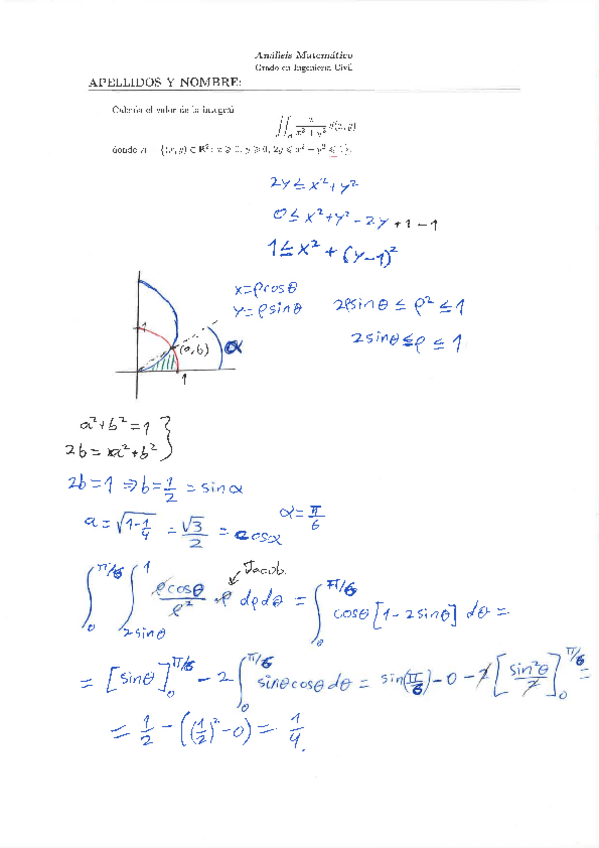 Análisis Matemático
Grado en Ingeniería Civil
APELLIDOS Y NOMBRE:
Calcula el valor de la integral
∬_A x/(x² + y²) d(x, y)
donde A = {(x, y) ∈ R² : x ⩾ 0, y ⩾ 0, 2y ⩽ x² + y² ⩽ 1}.
2y ≤ x² + y²
0 ≤ x² + y² - 2y + 1 - 1
1 ≤ x² + (y-1)²
x = ρcosθ
y = ρsinθ 2ρsinθ ≤ ρ² ≤ 1
2sinθ ≤ ρ ≤ 1
1
(a,b) α
1
a² + b² = 1 }
2b = a² + b² }
2b = 1 ⇒ b = 1/2 = sinα
a = √(1 - 1/4) = √3/2 = cosα α = π/6
Jacob.
∫_0^{π/6} ∫_{2sinθ}^1 ρcosθ/ρ² · ρ dρdθ = ∫_0^{π/6} cosθ[1 - 2sinθ] dθ =
= [sinθ]_0^{π/6} - 2 ∫_0^{π/6} sinθcosθdθ = sin(π/6) - 0 - 2 [sin²θ/2]_0^{π/6} =
= 1/2 - ((1/2)² - 0) = 1/4.